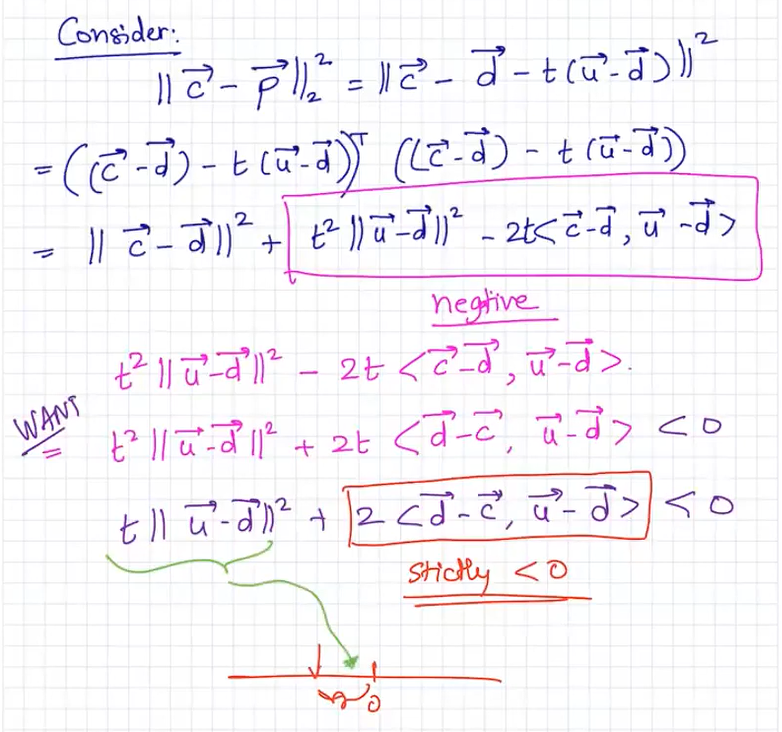 Consider:
||c⃗ - p⃗||₂² = ||c⃗ - d⃗ - t(u⃗-d⃗)||²
= ((c⃗-d⃗) - t(u⃗-d⃗))ᵀ ((c⃗-d⃗) - t(u⃗-d⃗))
= ||c⃗-d⃗||² + t²||u⃗-d⃗||² - 2t<c⃗-d⃗, u⃗-d⃗>
negtive
t²||u⃗-d⃗||² - 2t <c⃗-d⃗, u⃗-d⃗>.
WANT t²||u⃗-d⃗||² + 2t <d⃗-c⃗, u⃗-d⃗> <0
t||u⃗-d⃗||² + 2<d⃗-c⃗, u⃗-d⃗> <0
stictly <0
0